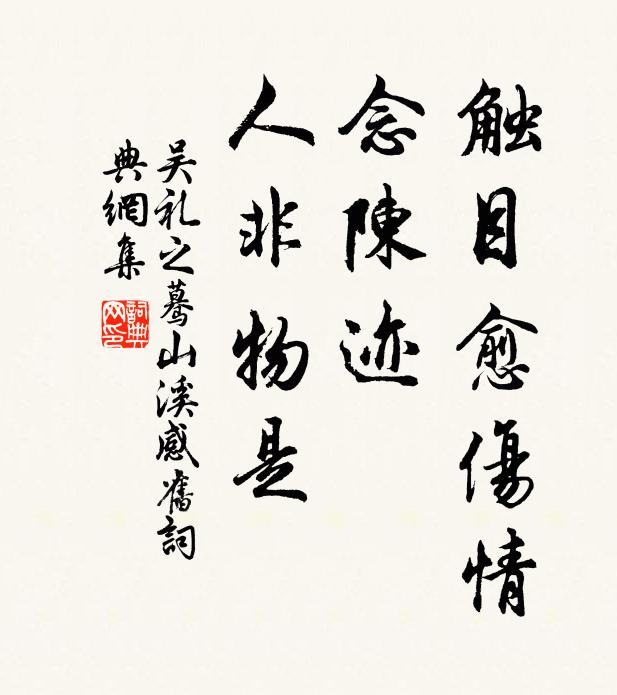 触目愈傷情
念陳迹
人非物是
吴礼之蓦山溪感舊詞
典網集
詞典
网印